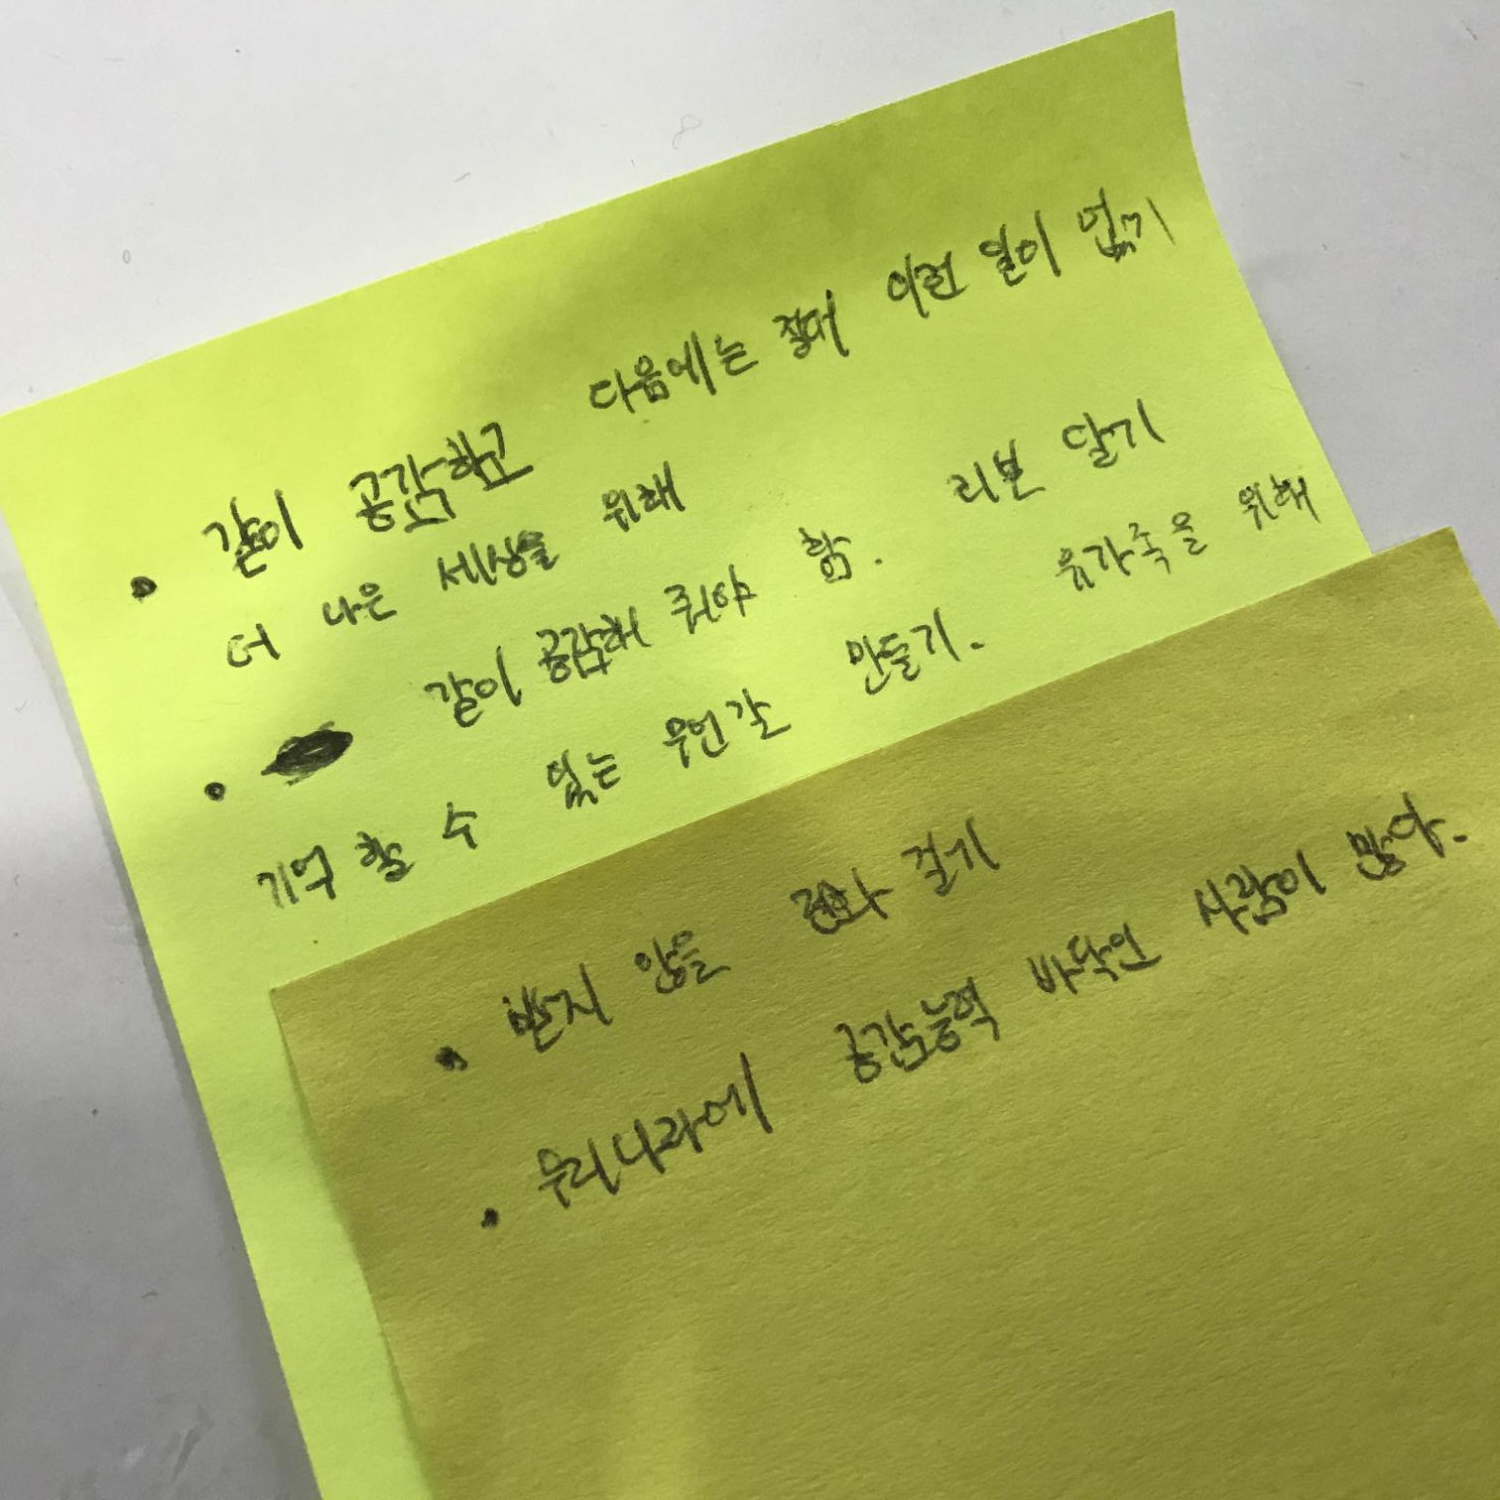 • 같이 공감하고 다음에는 절대 이런 일이 없기
더 나은 세상을 위해
• 같이 공감해 줘야 함. 리본 달기
기억 할 수 있는 무언갈 만들기. 유가족을 위해
• 받지 않을 전화 걸기
• 우리나라에 공감능력 바닥인 사람이 많아.